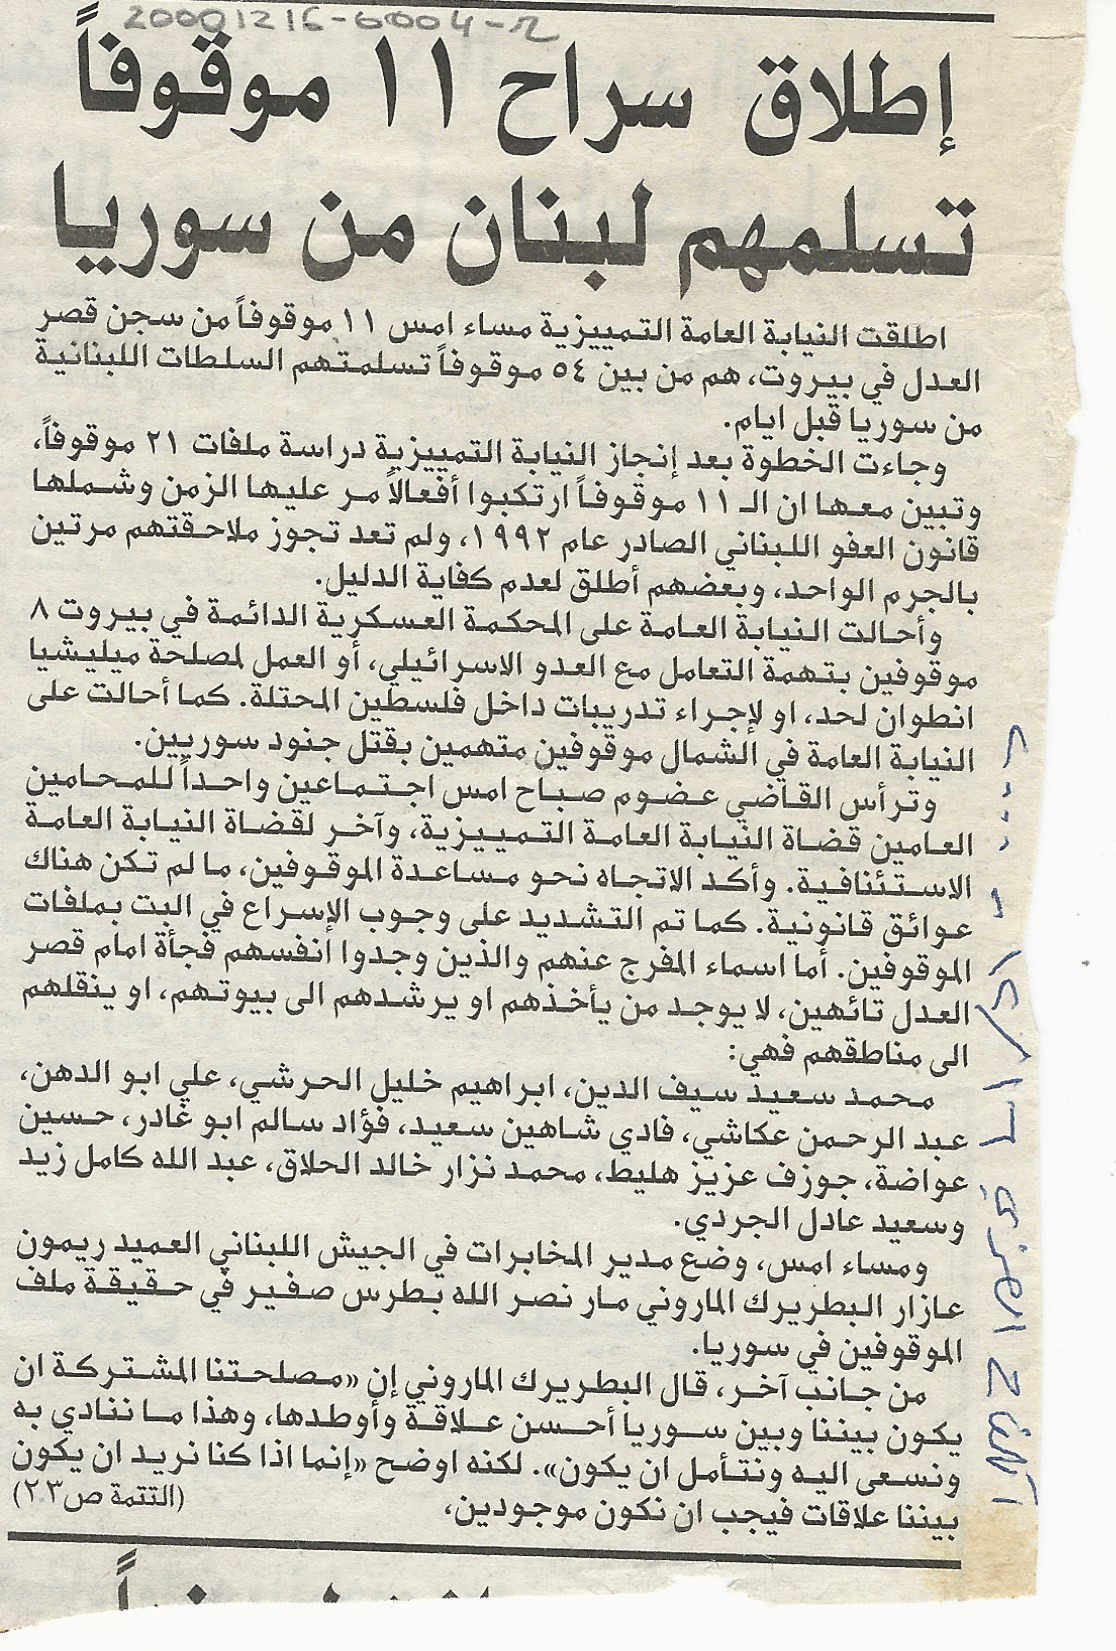 20001216-0004-r
إطلاق سراح ١١ موقوفاً
تسلمهم لبنان من سوريا
اطلقت النيابة العامة التمييزية مساء امس ١١ موقوفاً من سجن قصر
العدل في بيروت، هم من بين ٥٤ موقوفاً تسلمتهم السلطات اللبنانية
من سوريا قبل ايام.
وجاءت الخطوة بعد إنجاز النيابة التمييزية دراسة ملفات ٢١ موقوفاً،
وتبين معها ان الـ ١١ موقوفاً ارتكبوا أفعالاً مر عليها الزمن وشملها
قانون العفو اللبناني الصادر عام ١٩٩٢، ولم تعد تجوز ملاحقتهم مرتين
بالجرم الواحد، وبعضهم أطلق لعدم كفاية الدليل.
وأحالت النيابة العامة على المحكمة العسكرية الدائمة في بيروت ٨
موقوفين بتهمة التعامل مع العدو الاسرائيلي، أو العمل لمصلحة ميليشيا
انطوان لحد، او لإجراء تدريبات داخل فلسطين المحتلة. كما أحالت على
النيابة العامة في الشمال موقوفين متهمين بقتل جنود سوريين.
وترأس القاضي عضوم صباح امس اجتماعين واحداً للمحامين
العامين قضاة النيابة العامة التمييزية، وآخر لقضاة النيابة العامة
الاستئنافية. وأكد الاتجاه نحو مساعدة الموقوفين، ما لم تكن هناك
عوائق قانونية. كما تم التشديد على وجوب الإسراع في البت بملفات
الموقوفين. أما اسماء المفرج عنهم والذين وجدوا انفسهم فجأة امام قصر
العدل تائهين، لا يوجد من يأخذهم او يرشدهم الى بيوتهم، او ينقلهم
الى مناطقهم فهي:
محمد سعيد سيف الدين، ابراهيم خليل الحرشي، علي ابو الدهن،
عبد الرحمن عكاشي، فادي شاهين سعيد، فؤاد سالم ابو غادر، حسين
عواضة، جوزف عزيز هليط، محمد نزار خالد الحلاق، عبد الله كامل زيد
وسعيد عادل الجردي.
ومساء امس، وضع مدير المخابرات في الجيش اللبناني العميد ريمون
عازار البطريرك الماروني مار نصر الله بطرس صفير في حقيقة ملف
الموقوفين في سوريا.
من جانب آخر، قال البطريرك الماروني إن «مصلحتنا المشتركة ان
يكون بيننا وبين سوريا أحسن علاقة وأوطدها، وهذا ما ننادي به
ونسعى اليه ونتأمل ان يكون». لكنه اوضح «إنما اذا كنا نريد ان يكون
بيننا علاقات فيجب ان نكون موجودين،
(التتمة ص٢٣)